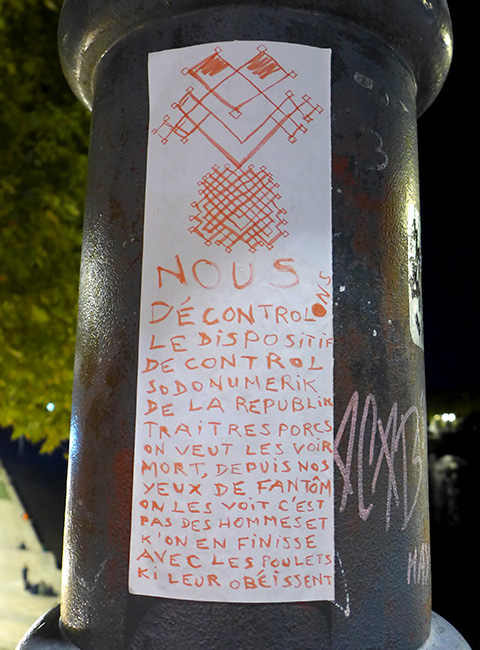 NOUS
DÉCONTROLONS
LE DISPOSITIF
DE CONTROL
SODONUMERIK
DE LA REPUBLIK
TRAITRES PORCS
ON VEUT LES VOIR
MORT, DEPUIS NOS
YEUX DE FANTÔM
ON LES VOIT C'EST
PAS DES HOMMES ET
K'ON EN FINISSE
AVEC LES POULETS
KI LEUR OBÉISSENT